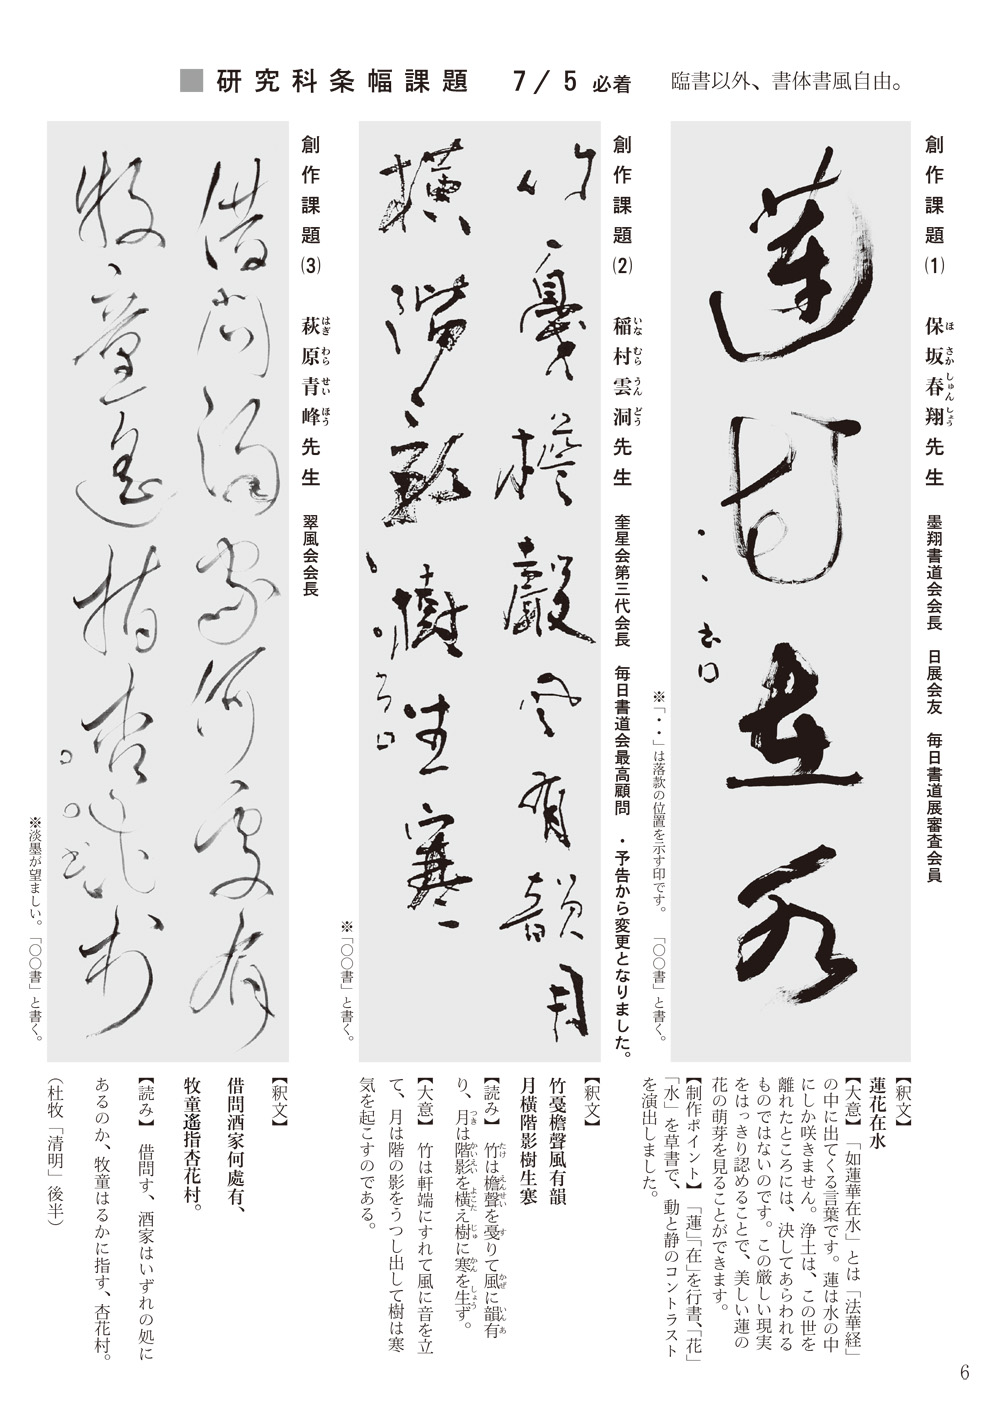 ■研究科条幅課題 7/5 必着 臨書以外、書体書風自由。
創作課題(1) 保坂春翔先生 墨翔書道会会長 日展会友 毎日書道展審査会員
ほ さか しゅん しょう
蓮花在水
※「・・」は落款の位置を示す印です。 「〇〇書」と書く。
【釈文】
蓮花在水
【大意】「如蓮華在水」とは「法華経」
の中に出てくる言葉です。蓮は水の中
にしか咲きません。浄土は、この世を
離れたところには、決してあらわれる
ものではないのです。この厳しい現実
をはっきり認めることで、美しい蓮の
花の萌芽を見ることができます。
【制作ポイント】「蓮」「在」を行書、「花」
「水」を草書で、動と静のコントラスト
を演出しました。
創作課題(2) 稲村雲洞先生 奎星会第三代会長 毎日書道会最高顧問 ・予告から変更となりました。
いな むら うん どう
竹戞檐聲風有韻月
橫階影樹生寒
※「〇〇書」と書く。
【釈文】
竹戞檐聲風有韻
月橫階影樹生寒
【読み】 竹は檐聲を戞りて風に韻有
たけ えんせい す かぜ いんあ
り、月は階影を横え樹に寒を生ず。
つき かいえい よこた じゅ かん しょう
【大意】 竹は軒端にすれて風に音を立
て、月は階の影をうつし出して樹は寒
気を起こすのである。
創作課題(3) 萩原青峰先生 翠風会会長
はぎ わら せい ほう
借問酒家何處有
牧童遙指杏花村
※淡墨が望ましい。「〇〇書」と書く。
【釈文】
借問酒家何處有、
牧童遙指杏花村。
【読み】 借問す、酒家はいずれの処に
あるのか、牧童はるかに指す、杏花村。
（杜牧「清明」後半）
6